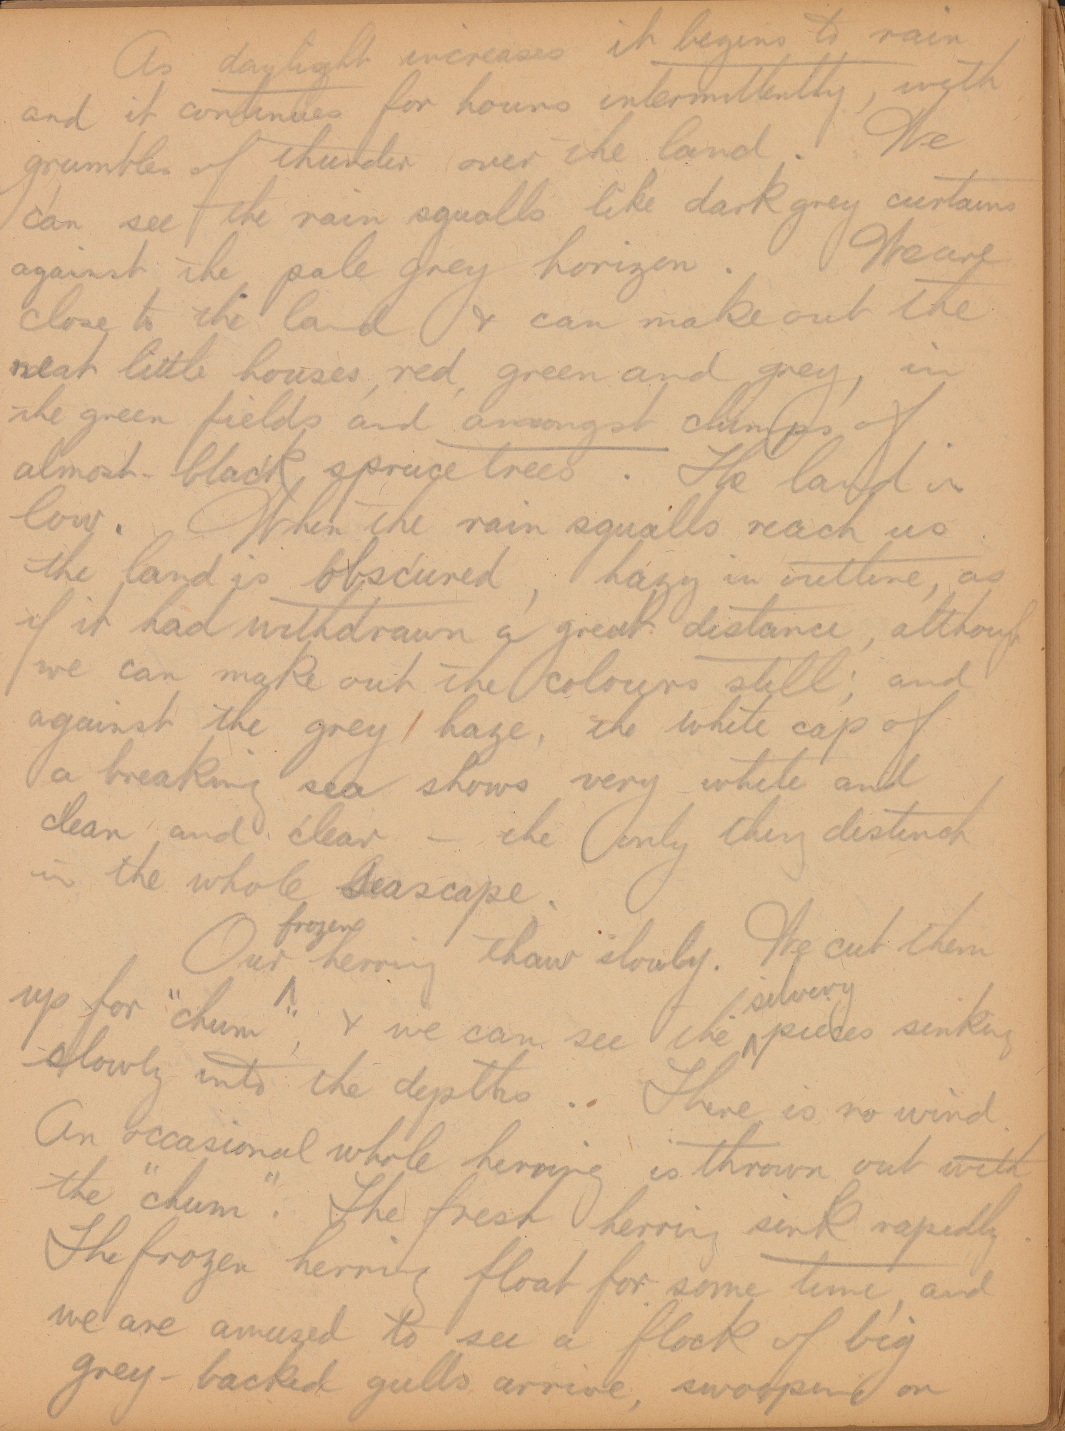 As daylight increases it begins to rain
and it continues for hours intermittently, with
grumbles of thunder over the land. We
can see the rain squalls like dark grey curtains
against the pale grey horizon. We are
close to the land & can make out the
neat little houses, red, green and grey, in
the green fields and amongst clumps of
almost-black spruce trees. The land is
low. When the rain squalls reach us
the land is obscured, hazy in outline, as
if it had withdrawn a great distance, although
we can make out the colours still; and
against the grey haze, the white cap of
a breaking sea shows very white and
clean and clear – the only thing distinct
in the whole seascape.
Our frozen herring thaw slowly. We cut them
up for "chum", & we can see the silvery pieces sinking
slowly into the depths.. There is no wind.
An occasional whole herring is thrown out with
the "chum". The fresh herring sink rapidly.
The frozen herring float for some time, and
we are amused to see a flock of big
grey-backed gulls arrive, swooping on